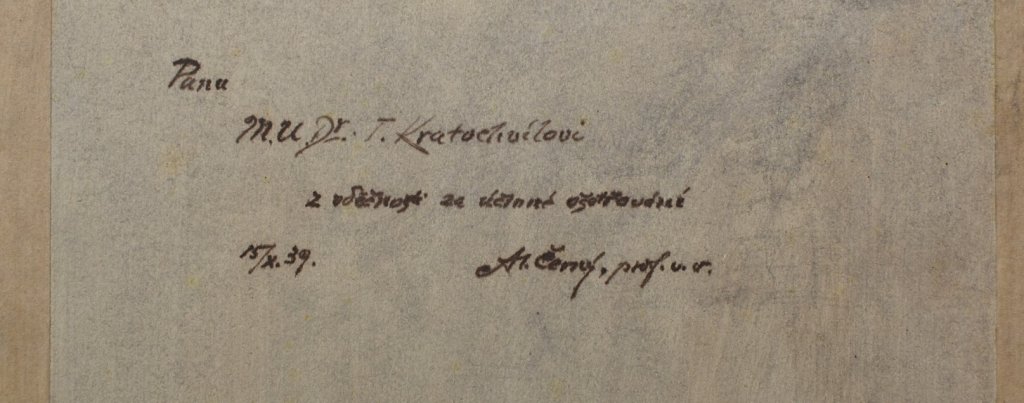 Panu
M.U.Dr. T. Kratochvílovi
z vděčnosti za účinné ošetřování
15/X.39.
Al. Černý, prof. v. v.